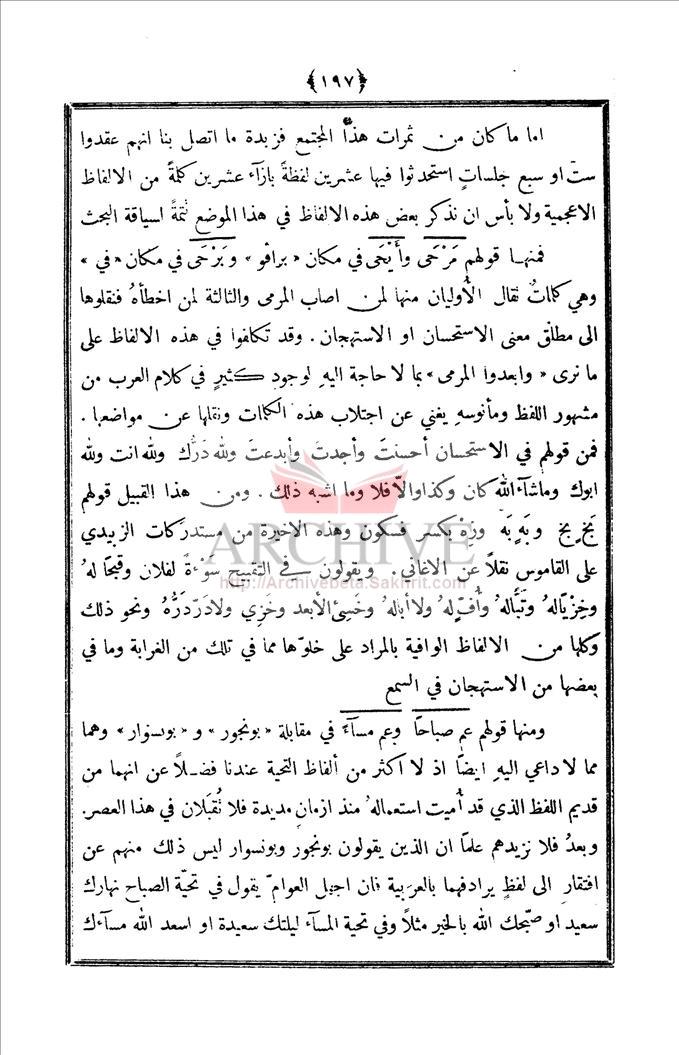 ﴿١٩٧﴾
اما ما كان من ثمرات هذا المجتمع فزبدة ما اتصل بنا انهم عقدوا
ست او سبع جلساتٍ استحدثوا فيها عشرين لفظةً بازآء عشرين كلمةً من الالفاظ
الاعجمية ولا بأس ان نذكر بعض هذه الالفاظ في هذا الموضع تتمةً لسياقة البحث
فمنها قولهم مَرْحَى وأَيْحَى في مكان «برافو» وبَرْحَى في مكان «في»
وهي كلماتٌ تقال الأُوليان منها لمن اصاب المرمى والثالثة لمن اخطأهُ فنقلوها
الى مطلق معنى الاستحسان او الاستهجان . وقد تكلفوا في هذه الالفاظ على
ما نرى «وابعدوا المرمى» بما لا حاجة اليهِ لوجود كثيرٍ في كلام العرب من
مشهور اللفظ ومأنوسهِ يغني عن اجتلاب هذه الكلمات ونقلها عن مواضعها .
فمن قولهم في الاستحسان أحسنتَ وأجدتَ وأبدعتَ ولله دَرُّك ولله انت ولله
ابوك وماشآء الله كان وكذا والاّ فلا وما اشبه ذلك . ومن هذا القبيل قولهم
بَخٍ بَخٍ وبَهٍ بَهٍ وزِهْ بكسر فسكون وهذه الاخيرة من مستدركات الزبيدي
على القاموس نقلاً عن الاغاني . ويقولون في التقبيح سَوْءةً لفلان وقبحًا لهُ
وخِزْيًا لهُ وتَبًّا لهُ وأُفٍّ لهُ ولا أبا لهُ وخَسِئَ الأبعد وخَزِي ولا دَرَّ دَرُّهُ ونحو ذلك
وكلها من الالفاظ الوافية بالمراد على خلوّها مما في تلك من الغرابة وما في
بعضها من الاستهجان في السمع
ومنها قولهم عِم صباحًا وعِم مسآءً في مقابلة «بونجور» و «بونسوار» وهما
مما لا داعي اليهِ ايضًا اذ لا اكثر من ألفاظ التحية عندنا فضلاً عن انهما من
قديم اللفظ الذي قد أُميت استعمالهُ منذ ازمانٍ مديدة فلا تُقبَلان في هذا العصر.
وبعدُ فلا نزيدهم علمًا ان الذين يقولون بونجور وبونسوار ليس ذلك منهم عن
افتقارٍ الى لفظٍ يرادفهما بالعربية فان اجهل العوامّ يقول في تحيّة الصباح نهارك
سعيد او صبّحك الله بالخير مثلاً وفي تحية المسآء ليلتك سعيدة او اسعد الله مسآءك
ARCHIVE
http://Archivebeta.Sakhrit.com